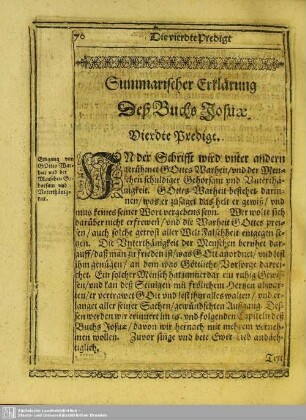 76 Die vierdte Predigt
Summarischer Erklärung
Deß Buchs Josuæ.
Vierdte Predigt.
Eingang von
GOttes War-
heit vnd der
Menschen Ge-
horsam vnd
Vnterthänig-
keit.
IN der Schrifft wird vnter andern
gerühmet GOttes Warheit / vnd der Men-
schen schuldiger Gehorsam vnd Vnterthä-
nigkeit. GOttes Warheit bestehet darin-
nen / was er zusaget das helt er gewiß / vnd
mus keines seiner Wort vergebens seyn. Wer wolte sich
darüber nicht erfrewen / vnd die Warheit Gottes prei-
sen / auch solche getrost aller Welt Falschheit entgegen se-
tzen. Die Vnterthänigkeit der Menschen beruhet dar-
auff / daß man zu frieden ist / was GOtt anordnet / vnd lest
ihm genügen / an dem was Göttliche Vorsorge darrei-
chet. Ein solcher Mensch hat immerdar ein ruhig Gewis-
sen / vnd kan deß Seinigen mit frölichem Hertzen abwar-
ten / er vertrawet GOtt vnd lest ihn alles walten / vnd er-
langet aller seiner Sachen / gewündschten Außgang. Des-
sen worden wir erinnert im 18. vnd folgenden Capiteln deß
Buchs Josuæ / davon wir hernach mit mehrem verneh-
men wollen. Zuvor singe vnd bete Ewer Lieb andäch-
tiglich.